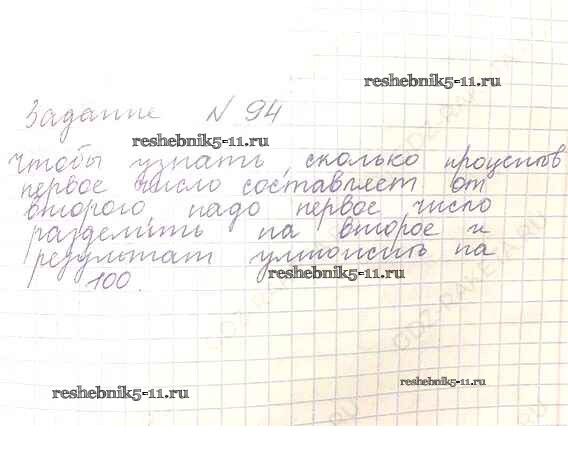 reshebnik5-11.ru
Задание N 94
reshebnik5-11.ru
Чтобы узнать, сколько процентов
первое число составляет от
второго, надо первое число
разделить на второе и
результат умножить на
100.
reshebnik5-11.ru
GDZ-RAKETA.RU
GDZ-RAKETA.RU
reshebnik5-11.ru
reshebnik5-11.ru